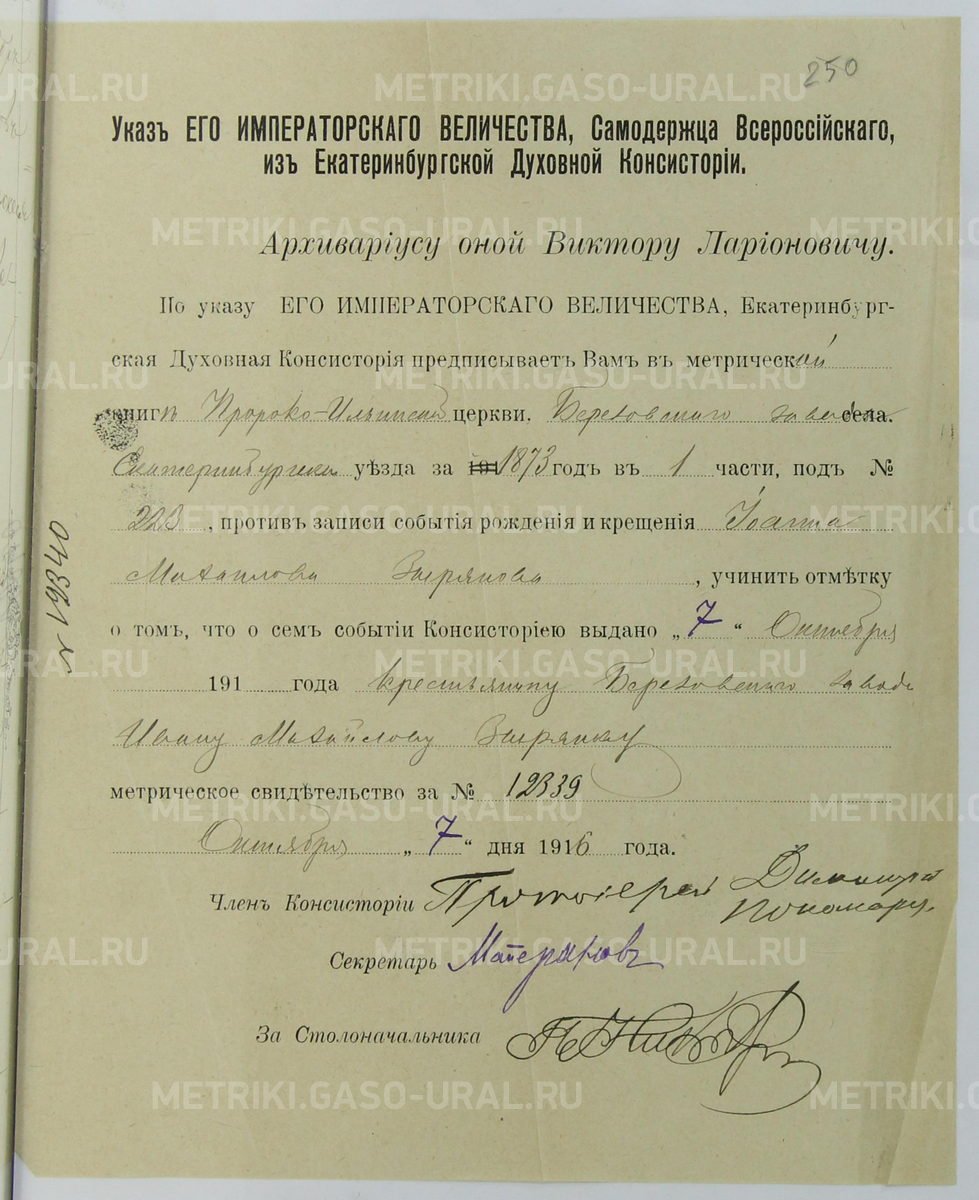 250
Указъ ЕГО ИМПЕРАТОРСКАГО ВЕЛИЧЕСТВА, Самодержца Всероссійскаго,
изъ Екатеринбургской Духовной Консисторіи.
Архиваріусу оной Виктору Ларіоновичу.
По указу ЕГО ИМПЕРАТОРСКАГО ВЕЛИЧЕСТВА, Екатеринбург-
ская Духовная Консисторія предписываетъ Вамъ въ метрической
книгѣ Пророко-Ильинской церкви. Березовскаго завода села.
Екатеринбургскаго уѣзда за 191 1873 годъ въ 1 части, подъ №
223, противъ записи событія рожденія и крещенія Іоанна
Михаилова Зырянова, учинить отмѣтку
о томъ, что о семъ событіи Консисторіею выдано „7“ Октября
191 года крестьянину Березовскаго завода
Ивану Михайлову Зырянову
метрическое свидѣтельство за № 12339
Октября „7“ дня 1916 года.
Членъ Консисторіи Протоіерей Димитрій
Секретарь
За Столоначальника
№ 12340
METRIKI.GASO-URAL.RU